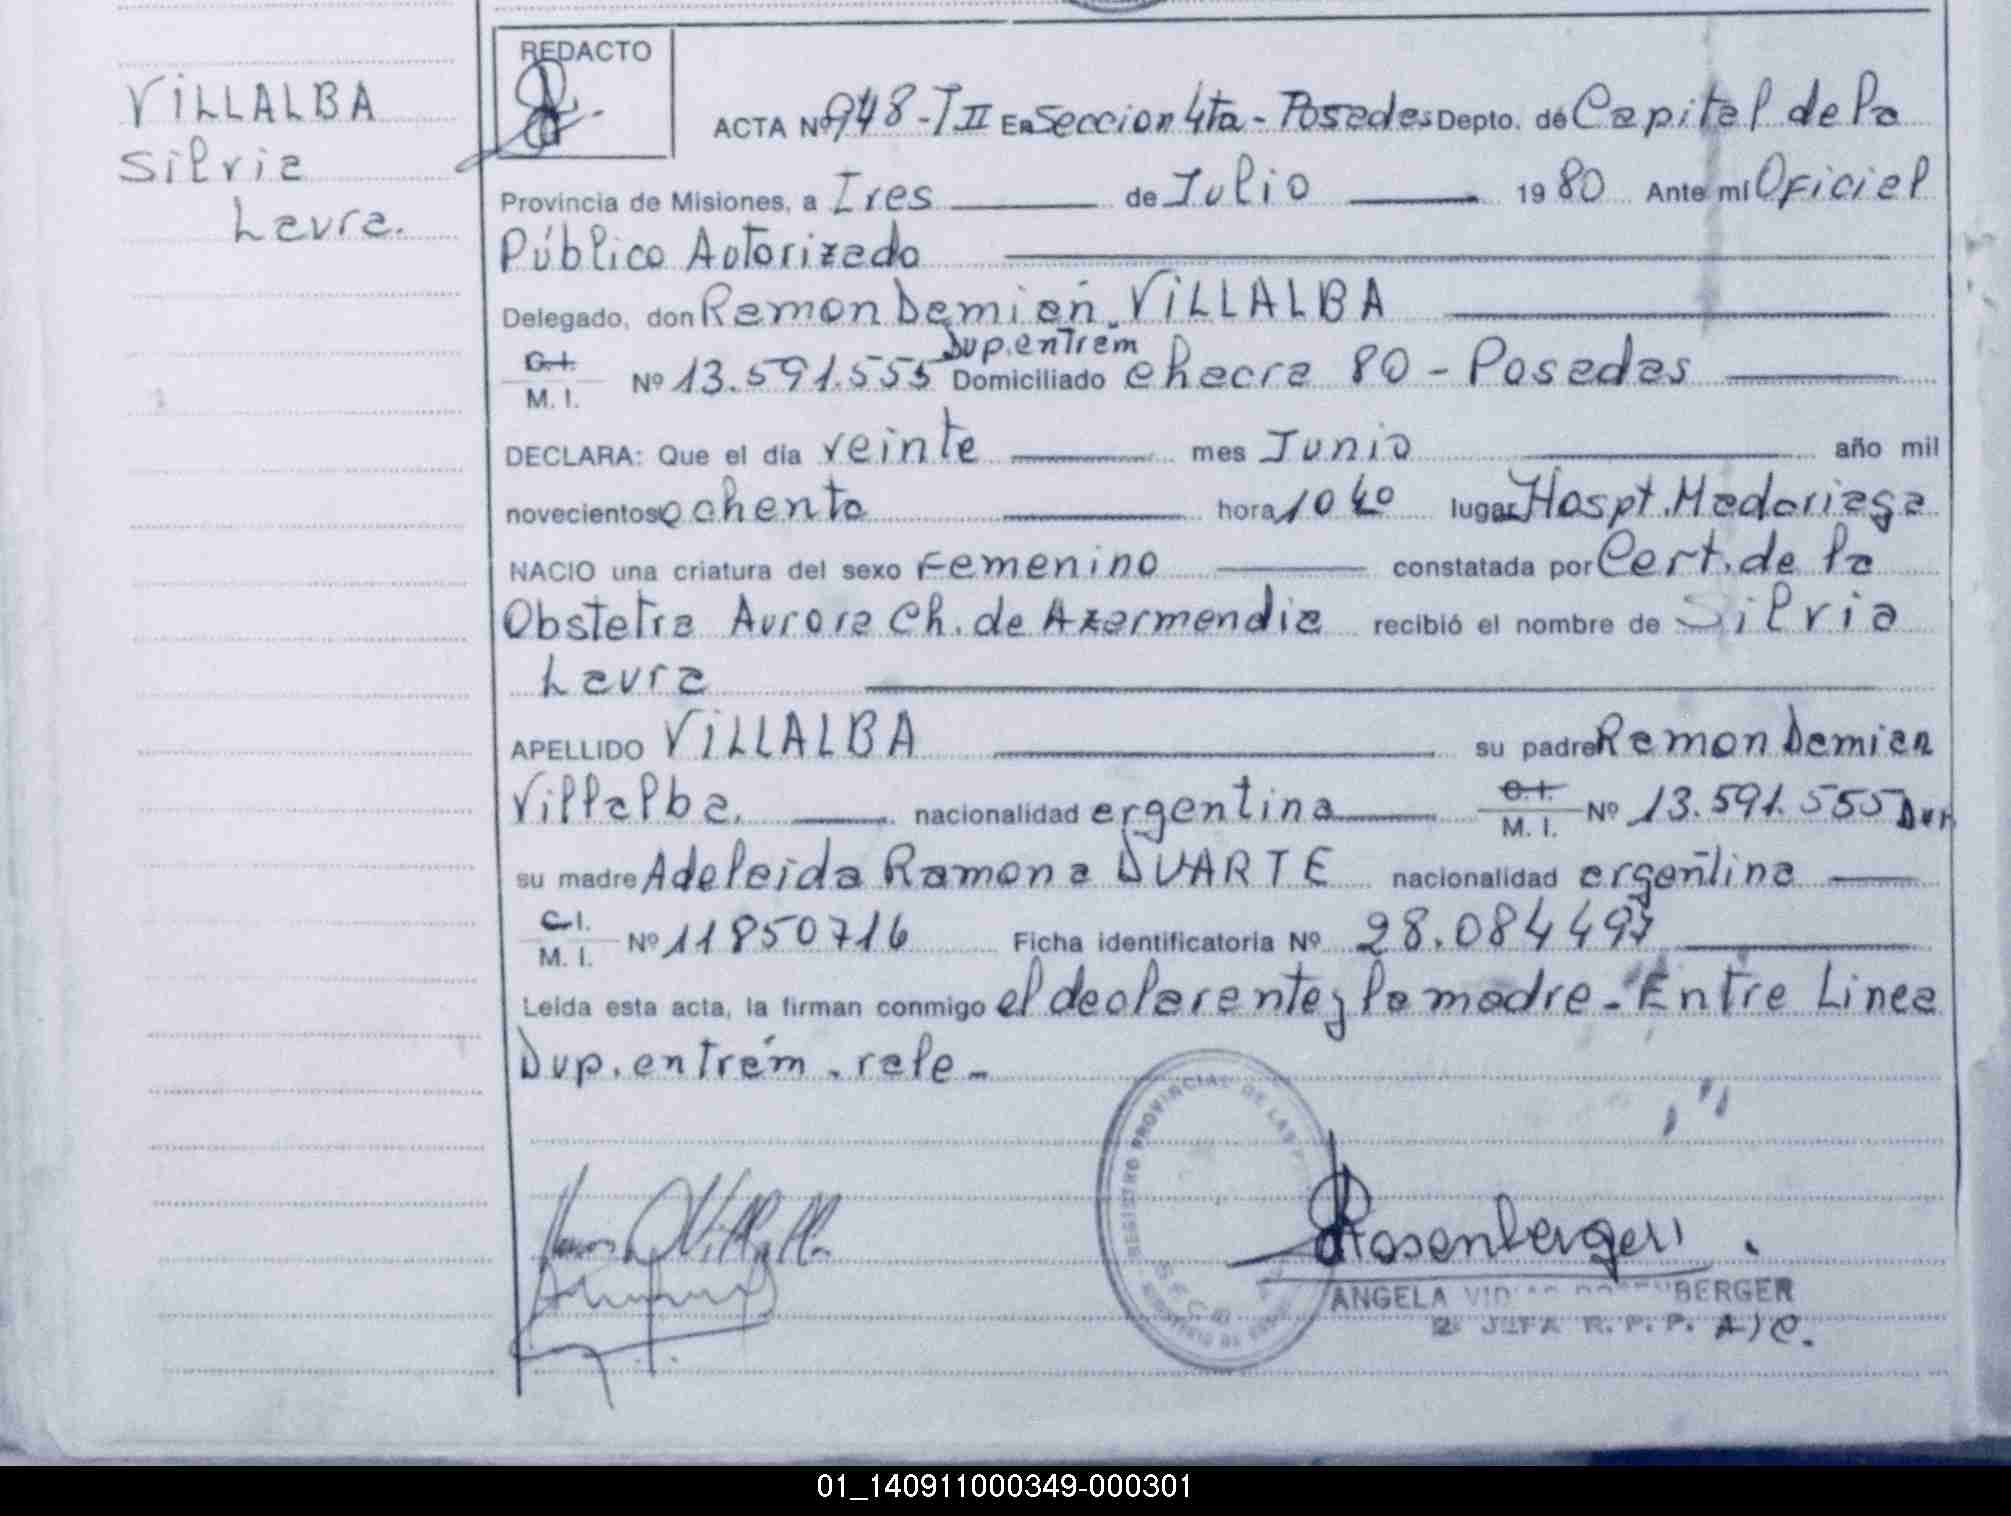 VILLALBA
Silvia
Laura.
REDACTO
ACTA Nº 948-T II En Seccion 4ta - Posadas Depto. de Capital de la
Provincia de Misiones, a Tres de Julio 1980 Ante mí Oficial
Público Autorizado
Delegado, don Ramon Damian VILLALBA
Dup. entrem
C.I.
M. I. Nº 13.591.555 Domiciliado chacra 80 - Posadas
DECLARA: Que el día veinte mes Junio año mil
novecientos ochenta hora 10 40 lugar Hospt. Madariaga
NACIO una criatura del sexo Femenino constatada por Cert. de la
Obstetra Aurora Ch. de Azarmendia recibió el nombre de Silvia
Laura
APELLIDO VILLALBA su padre Ramon Damian
Villalba. nacionalidad argentina C.I.
M. I. Nº 13.591.555 Dup
su madre Adelaida Ramona DUARTE nacionalidad argentina
C.I.
M. I. Nº 11850716 Ficha identificatoria Nº 28.084497
Leída esta acta, la firman conmigo el declarante y la madre - Entre Linea
Dup. entrem. vale -
REGISTRO PROVINCIAL DE LAS
ANGELA BERGER
2ª JEFA R. P. P. A/C.
01_140911000349-000301